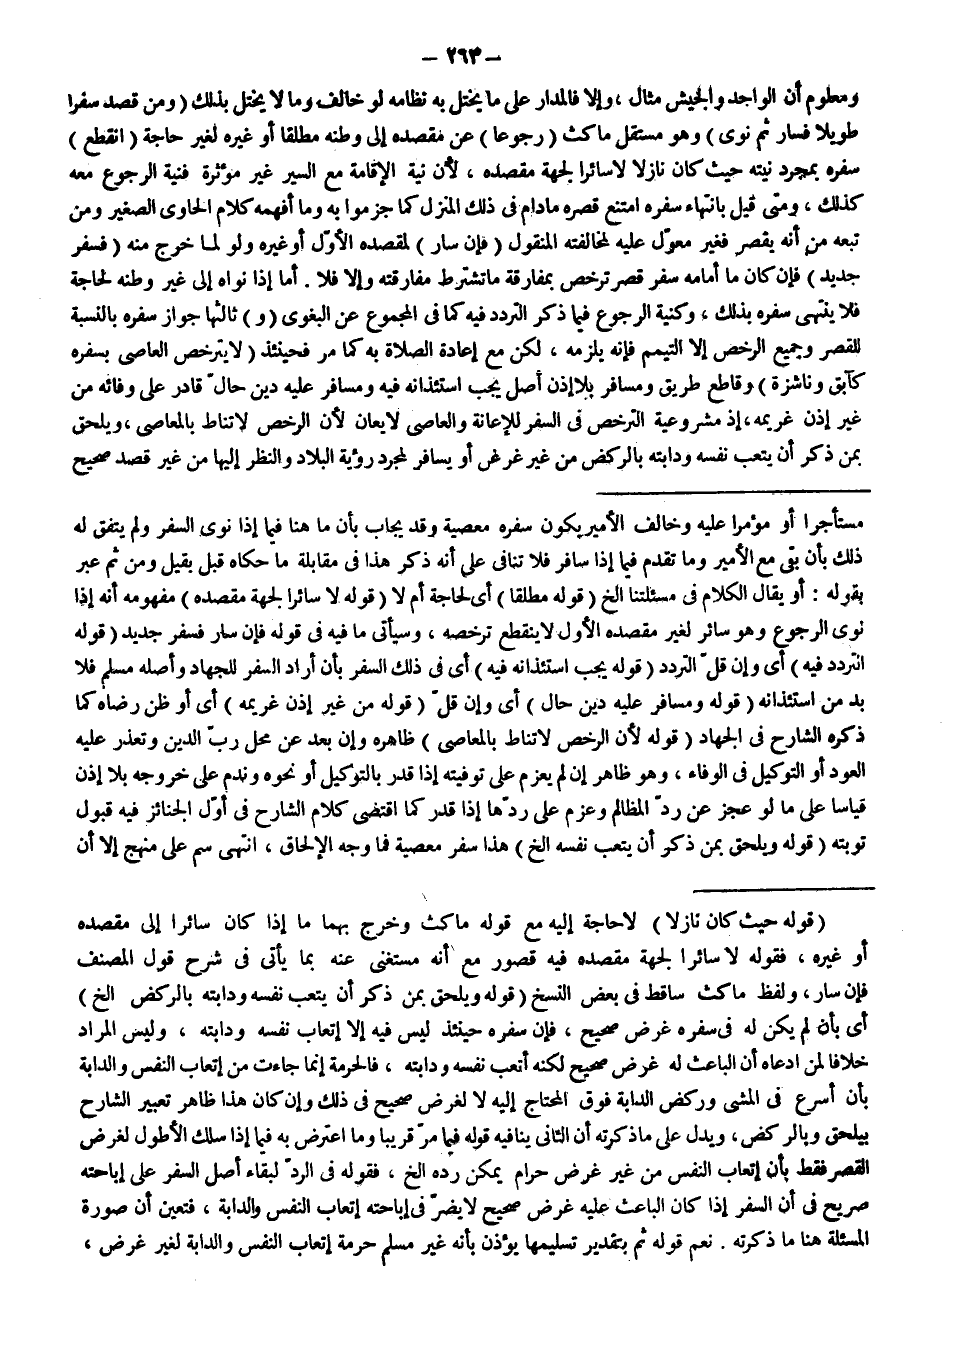 – ٢٦٣ –
ومعلوم أن الواحد والجيش مثال ، وإلا فالمدار على ما يختل به نظامه لو خالف وما لا يختل بذلك ( ومن قصد سفرا
طويلا فسار ثم نوى ) وهو مستقل ماكث ( رجوعا ) عن مقصده إلى وطنه مطلقا أو غيره لغير حاجة ( انقطع )
سفره بمجرد نيته حيث كان نازلا لا سائرا لجهة مقصده ، لأن نية الإقامة مع السير غير مؤثرة فنية الرجوع معه
كذلك ، ومتى قيل بانتهاء سفره امتنع قصره مادام فى ذلك المنزل كما جزموا به وما أفهمه كلام الحاوى الصغير ومن
تبعه من أنه يقصر فغير معوّل عليه لمخالفته المنقول ( فإن سار ) لمقصده الأوّل أو غيره ولو لما خرج منه ( فسفر
جديد ) فإن كان ما أمامه سفر قصر ترخص بمفارقة ما تشترط مفارقته وإلا فلا . أما إذا نواه إلى غير وطنه لحاجة
فلا ينتهى سفره بذلك ، وكنية الرجوع فيما ذكر التردد فيه كما فى المجموع عن البغوى ( و ) ثالثها جواز سفره بالنسبة
للقصر وجميع الرخص إلا التيمم فإنه يلزمه ، لكن مع إعادة الصلاة به كما مر فحينئذ ( لا يترخص العاصى بسفره
كآبق وناشزة ) وقاطع طريق ومسافر بلا إذن أصل يجب استئذانه فيه ومسافر عليه دين حالّ قادر على وفائه من
غير إذن غريمه ، إذ مشروعية الترخص فى السفر للإعانة والعاصى لا يعان لأن الرخص لا تناط بالمعاصى ، ويلحق
بمن ذكر أن يتعب نفسه ودابته بالركض من غير غرض أو يسافر لمجرد رؤية البلاد والنظر إليها من غير قصد صحيح
مستأجرا أو مؤمرا عليه وخالف الأمير يكون سفره معصية وقد يجاب بأن ما هنا فيما إذا نوى السفر ولم يتفق له
ذلك بأن بقى مع الأمير وما تقدم فيما إذا سافر فلا تنافى على أنه ذكر هذا فى مقابلة ما حكاه قبل بقيل ومن ثم عبر
بقوله : أو يقال الكلام فى مسئلتنا الخ ( قوله مطلقا ) أى لحاجة أم لا ( قوله لا سائرا لجهة مقصده ) مفهومه أنه إذا
نوى الرجوع وهو سائر لغير مقصده الأول لاينقطع ترخصه ، وسيأتى ما فيه فى قوله فإن سار فسفر جديد ( قوله
التردد فيه ) أى وإن قلّ التردد ( قوله يجب استئذانه فيه ) أى فى ذلك السفر بأن أراد السفر للجهاد وأصله مسلم فلا
بد من استئذانه ( قوله ومسافر عليه دين حال ) أى وإن قلّ ( قوله من غير إذن غريمه ) أى أو ظن رضاه كما
ذكره الشارح فى الجهاد ( قوله لأن الرخص لاتناط بالمعاصى ) ظاهره وإن بعد عن محل ربّ الدين وتعذر عليه
العود أو التوكيل فى الوفاء ، وهو ظاهر إن لم يعزم على توفيته إذا قدر بالتوكيل أو نحوه وندم على خروجه بلا إذن
قياسا على ما لو عجز عن ردّ المظالم وعزم على ردّها إذا قدر كما اقتضى كلام الشارح فى أوّل الجنائز فيه قبول
توبته ( قوله ويلحق بمن ذكر أن يتعب نفسه الخ ) هذا سفر معصية فما وجه الإلحاق ، انتهى سم على منهج إلا أن
( قوله حيث كان نازلا ) لاحاجة إليه مع قوله ماكث وخرج بهما ما إذا كان سائرا إلى مقصده
أو غيره ، فقوله لا سائرا لجهة مقصده فيه قصور مع أنه مستغنى عنه بما يأتى فى شرح قول المصنف
فإن سار ، ولفظ ماكث ساقط فى بعض النسخ ( قوله ويلحق بمن ذكر أن يتعب نفسه ودابته بالركض الخ )
أى بأن لم يكن له فى سفره غرض صحيح ، فإن سفره حينئذ ليس فيه إلا إتعاب نفسه ودابته ، وليس المراد
خلافا لمن ادعاه أن الباعث له غرض صحيح لكنه أتعب نفسه ودابته ، فالحرمة إنما جاءت من إتعاب النفس والدابة
بأن أسرع فى المشى وركض الدابة فوق المحتاج إليه لا لغرض صحيح فى ذلك وإن كان هذا ظاهر تعبير الشارح
بيلحق وبالركض ، ويدل على ماذكرته أن الثانى ينافيه قوله فيما مرّ قريبا وما اعترض به فيما إذا سلك الأطول لغرض
القصر فقط بأن إتعاب النفس من غير غرض حرام يمكن رده الخ ، فقوله فى الردّ لبقاء أصل السفر على إباحته
صريح فى أن السفر إذا كان الباعث عليه غرض صحيح لايضرّ فى إباحته إتعاب النفس والدابة ، فتعين أن صورة
المسئلة هنا ما ذكرته . نعم قوله ثم بتقدير تسليمها يؤذن بأنه غير مسلم حرمة إتعاب النفس والدابة لغير غرض ،